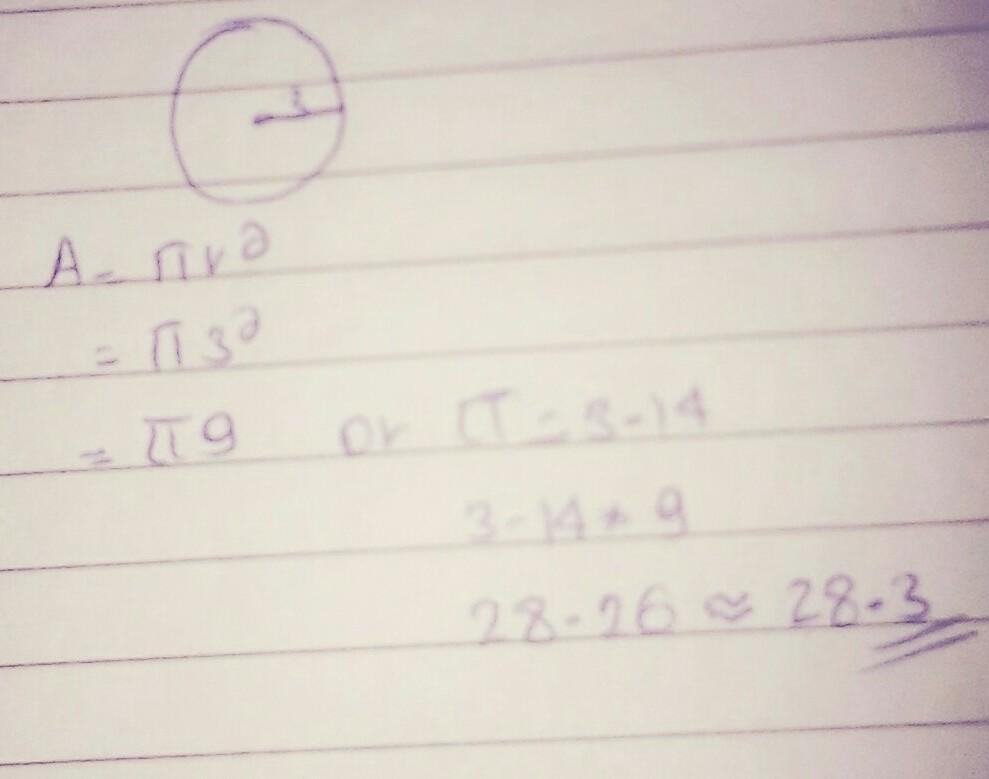 3
A = πr²
= π3²
= π9 or π = 3.14
3.14 * 9
28.26 ≈ 28.3